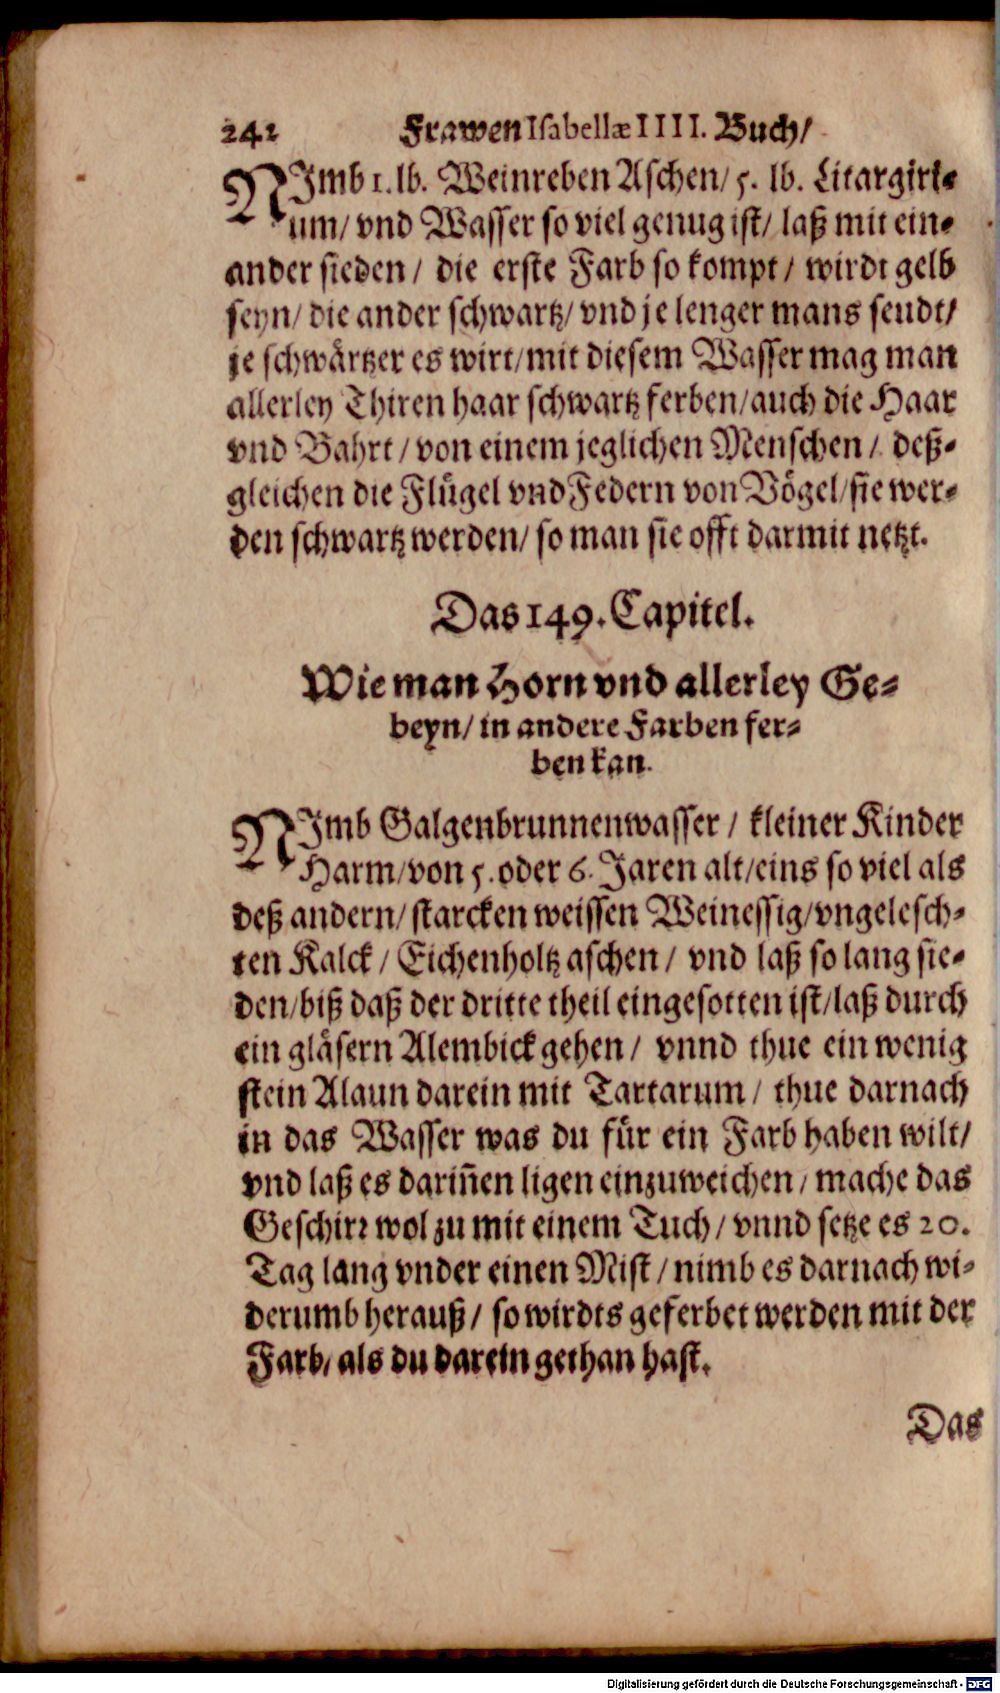 242 Frawen Isabellæ IIII. Buch/
NImb 1. lb. Weinreben Aschen/ 5. lb. Litargiri-
um/ vnd Wasser so viel genug ist/ laß mit ein-
ander sieden/ die erste Farb so kompt/ wirdt gelb
seyn/ die ander schwartz/ vnd je lenger mans seudt/
je schwärtzer es wirt/ mit diesem Wasser mag man
allerley Thiren haar schwartz ferben/ auch die Haar
vnd Bahrt/ von einem jeglichen Menschen/ deß-
gleichen die Flügel vnd Federn von Vögel/ sie wer-
den schwartz werden/ so man sie offt darmit netzt.
Das 149. Capitel.
Wie man Horn vnd allerley Ge-
beyn/ in andere Farben fer-
ben kan.
NImb Galgenbrunnenwasser/ kleiner Kinder
Harm/ von 5. oder 6. Jaren alt/ eins so viel als
deß andern/ starcken weissen Weinessig/ vngelesch-
ten Kalck/ Eichenholtz aschen/ vnd laß so lang sie-
den/ biß daß der dritte theil eingesotten ist/ laß durch
ein gläsern Alembick gehen/ vnnd thue ein wenig
stein Alaun darein mit Tartarum/ thue darnach
in das Wasser was du für ein Farb haben wilt/
vnd laß es dariñen ligen einzuweichen/ mache das
Geschirr wol zu mit einem Tuch/ vnnd setze es 20.
Tag lang vnder einen Mist/ nimb es darnach wi-
derumb herauß/ so wirdts geferbet werden mit der
Farb/ als du darein gethan hast.
Das
Digitalisierung gefördert durch die Deutsche Forschungsgemeinschaft - DFG